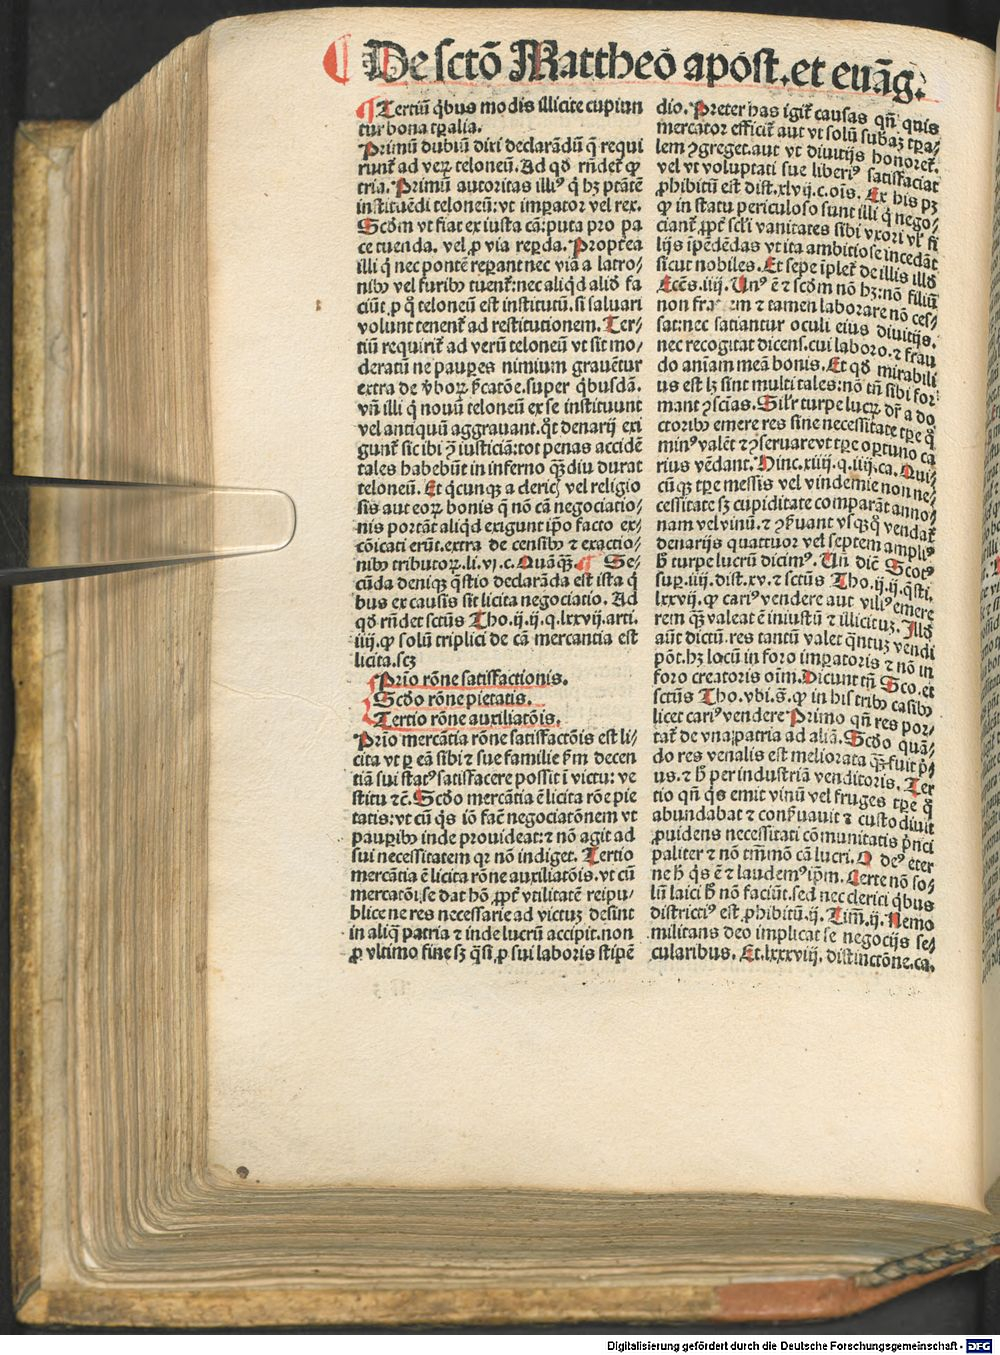 ¶ De sctō Mattheo apost. et euāg.
¶ Tertiū q̇bus modis illicite cupiun
tur bona tꝑalia.
Primū dubiū dixi declarādū q̄ requi
runt᷑ ad veꝝ teloneū. Ad qd̄ rñdet᷑ ꝙ
tria. Primū autoritas illiꝰ q̇ hꝫ ptātē
instituēdi teloneū: vt imꝑator vel rex.
Scd̄m vt fiat ex iusta cā: puta pro pa
ce tuenda. vel ꝓ via reꝑda. Propt̄ea
illi q̇ nec pontē reꝑant nec viā a latro-
nibꝰ vel furibꝰ tuent᷑: nec aliqd aliō fa
ciūt ꝓ q̊ teloneū est institutū. si saluari
volunt tenent᷑ ad restitutionem. Ter-
tiū requirit᷑ ad verū teloneū vt sit mo-
deratū ne pauꝑes nimium grauētur
extra de v̄boꝝ. p̄catōe. super q̇busdā.
vñ illi q̇ nouū teloneū ex se instituunt
vel antiquū aggrauant. q̊t denarij exi
gunt᷑ sic ibi ꝯ̄ iusticiā: tot penas accidē
tales habebūt in inferno qꝫ̄diu durat
teloneū. Et q̇cunqꝫ a clericꝭ vel religio
sis aut eoꝝ bonis q̄ nō cā negociatio-
nis portāt aliqd exigunt ip̄o facto ex-
cōicati erūt. extra de censibꝰ ⁊ exactio-
nibꝰ tributoꝝ. li. vj. c. Quāqꝫ̄. ¶ Se-
cūda deniqꝫ q̄stio declarāda est ista q̇
bus ex causis sit licita negociatio. Ad
qd̄ rñdet sctūs Tho. ij. ij. q. lxxvij. arti.
iiij. ꝙ solū triplici de cā mercantia est
licita. scꝫ
Prīo rōne satisfactionis.
Scd̄o rōne pietatis.
Tertio rōne auxiliatōis.
Prīo mercātia rōne satisfactōis est li-
cita vt ꝑ eā sibi ⁊ sue familie ẜm decen
tiā sui statꝰ satisfacere possit ī victu: ve
stitu ⁊c̄. Scd̄o mercātia ē licita rōe pie
tatis: vt cū q̇s iō fac̄ negociatōnem vt
pauꝑibꝰ inde prouideat: ⁊ nō agit ad
sui necessitatem qꝛ nō indiget. Tertio
mercātia ē licita rōne auxiliatōis. vt cū
mercatōi se dat hō ꝓpt̄ vtilitatē reipu-
blice ne res necessarie ad victuꝫ desint
in aliq̇ patria ⁊ inde lucrū accipit. non
ꝓ vltimo fine sꝫ q̄si ꝓ sui laboris stipē
dio. Preter has igit᷑ causas qñ quis
mercator efficit᷑ aut vt solū subāꝫ tꝑa-
lem ꝯgreget. aut vt diuitijs honoret᷑.
vel vt voluptati sue liberiꝰ satisfaciat
ꝓhibitū est dist. xlvij. c. oīs. Ex his pꝫ
ꝙ in statu periculoso sunt illi q̇ nego-
ciant᷑ ꝓpt̄ scl̄i vanitates sibi vxori vl̓ fi
lijs īpēdēdas vt ita ambitiose incedāt
sicut nobiles. Et sepe īplet᷑ de illis illd̄
Eccēs. iiij. Unꝰ ē ⁊ scd̄m nō hꝫ: nō filiū
non fratrem ⁊ tamen laborare nō ces-
sat: nec satiantur oculi eius diuitijs.
nec recogitat dicens. cui laboro. ⁊ frau
do aniam meā bonis. Et qd̄ mirabili
us est lꝫ sint multi tales: nō tñ sibi for
mant ꝯsciās. Sil̓r turpe lucꝝ dr̄ a do
ctoribꝰ emere res sine necessitate tꝑe q̊
minꝰ valēt ⁊ ꝯseruare vt tꝑe oportuno ca
rius vēdant. Hinc. xiiij. q. iiij. ca. Qui-
cūqꝫ tꝑe messis vel vindemie non ne-
cessitate sꝫ cupiditate comparāt anno-
nam vel vinū. ⁊ ꝯ̄ẜuant vsqꝫq̊ vendat᷑
denarijs quattuor vel septem ampliꝰ
h̄ turpe lucrū dicimꝰ. Un dic̄ Scotꝰ
suꝑ. iiij. dist. xv. ⁊ sctūs Tho. ij. ij. q̄sti.
lxxvij. ꝙ cariꝰ vendere aut viliꝰ emere
rem qꝫ̄ valeat ē iniustū ⁊ illicituꝫ. Illd̄
aūt dictū. res tantū valet q̄ntuꝫ vendi
pōt. hꝫ locū in foro imꝑatoris ⁊ nō in
foro creatoris oīm. Dicunt tñ Sco. et
sctūs Tho. vbi. s̄. ꝙ in his tribꝰ casibꝰ
licet cariꝰ vendere Primo qñ res por-
tat᷑ de vna patria ad aliā. Scd̄o quā-
do res venalis est meliorata qꝫ̄ fuit p̄-
us. ⁊ h̄ per industriā venditoris. Ter
tio qñ q̇s emit vinū vel fruges tꝑe q̊
abundabat ⁊ conẜuauit ⁊ custodiuit
ꝓuidens necessitati cōmunitatis p̄nci
paliter ⁊ nō tm̄mō cā lucri. Q̇ deꝰ eter
ne h̄ q̇s ē ⁊ laudemꝰ ip̄m. Certe nō so-
lū laici h̄ nō faciūt. sed nec clerici q̇bus
districtiꝰ est ꝓhibitū. ij. Tim̄. ij. Nemo
militans deo implicat se negocijs se-
cularibus. Et. lxxxviij. distinctōne. ca.
Digitalisierung gefördert durch die Deutsche Forschungsgemeinschaft - DFG